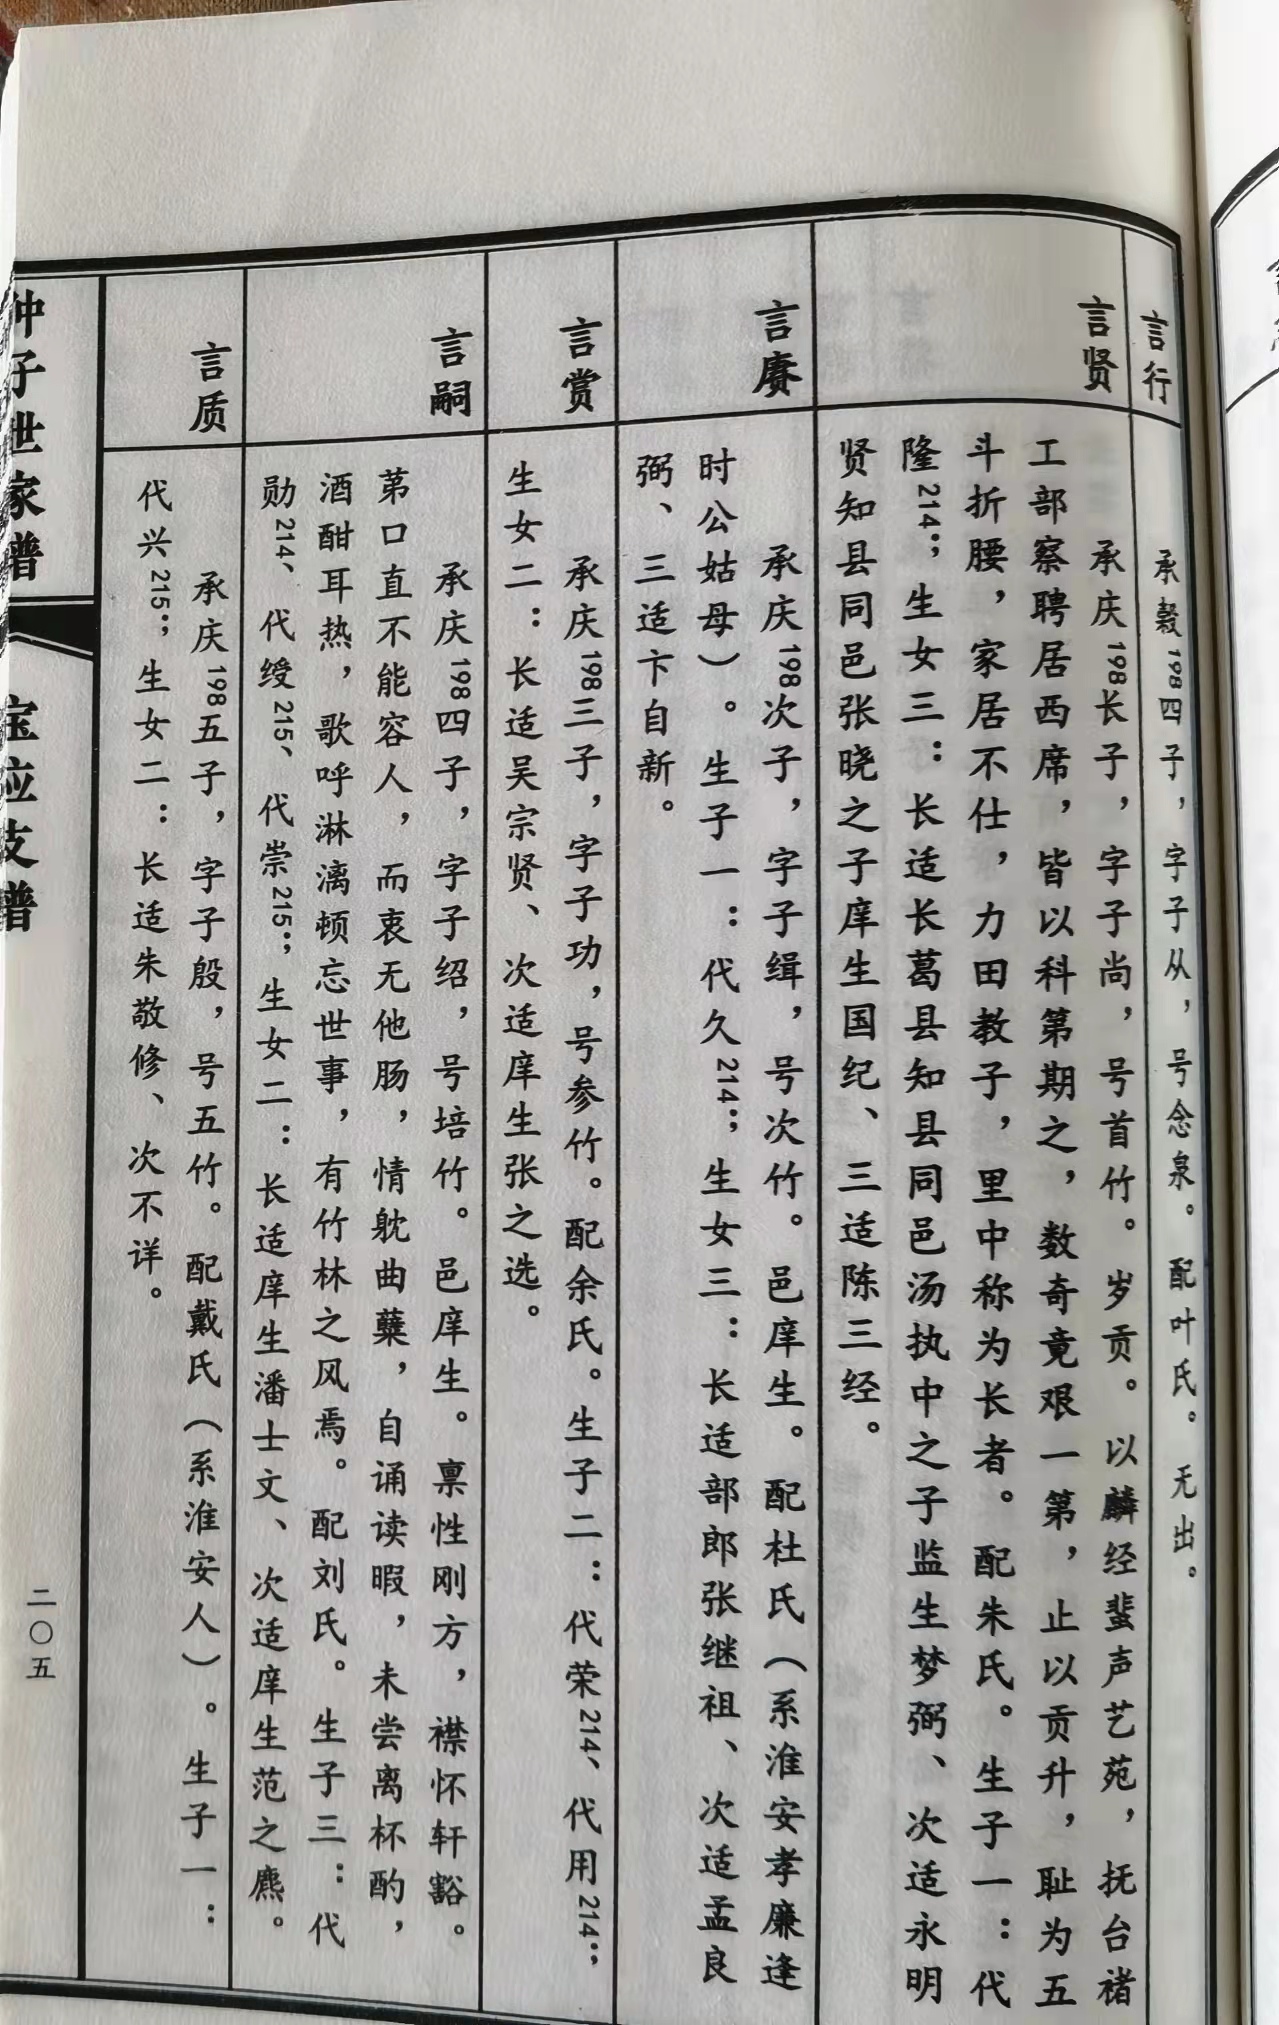 言行
承穀198四子，字子从，号念泉。配叶氏。无出。
言贤
承庆198长子，字子尚，号首竹。岁贡。以麟经蜚声艺苑，抚台褚
工部察聘居西席，皆以科第期之，数奇竟艰一第，止以贡升，耻为五
斗折腰，家居不仕，力田教子，里中称为长者。配朱氏。生子一：代
隆214；生女三：长适长葛县知县同邑汤执中之子监生梦弼、次适永明
贤知县同邑张晓之子庠生国纪、三适陈三经。
言赓
承庆198次子，字子缉，号次竹。邑庠生。配杜氏（系淮安孝廉逢
时公姑母）。生子一：代久214；生女三：长适部郎张继祖、次适孟良
弼、三适卞自新。
言赏
承庆198三子，字子功，号参竹。配余氏。生子二：代荣214、代用214；
生女二：长适吴宗贤、次适庠生张之选。
言嗣
承庆198四子，字子绍，号培竹。邑庠生。禀性刚方，襟怀轩豁。
苐口直不能容人，而衷无他肠，情躭曲蘖，自诵读暇，未尝离杯酌，
酒酣耳热，歌呼淋漓顿忘世事，有竹林之风焉。配刘氏。生子三：代
勋214、代绶215、代崇215；生女二：长适庠生潘士文、次适庠生范之麃。
言质
承庆198五子，字子殷，号五竹。配戴氏（系淮安人）。生子一：
代兴215；生女二：长适朱敬修、次不详。
仲子世家谱
宝应支谱
二〇五